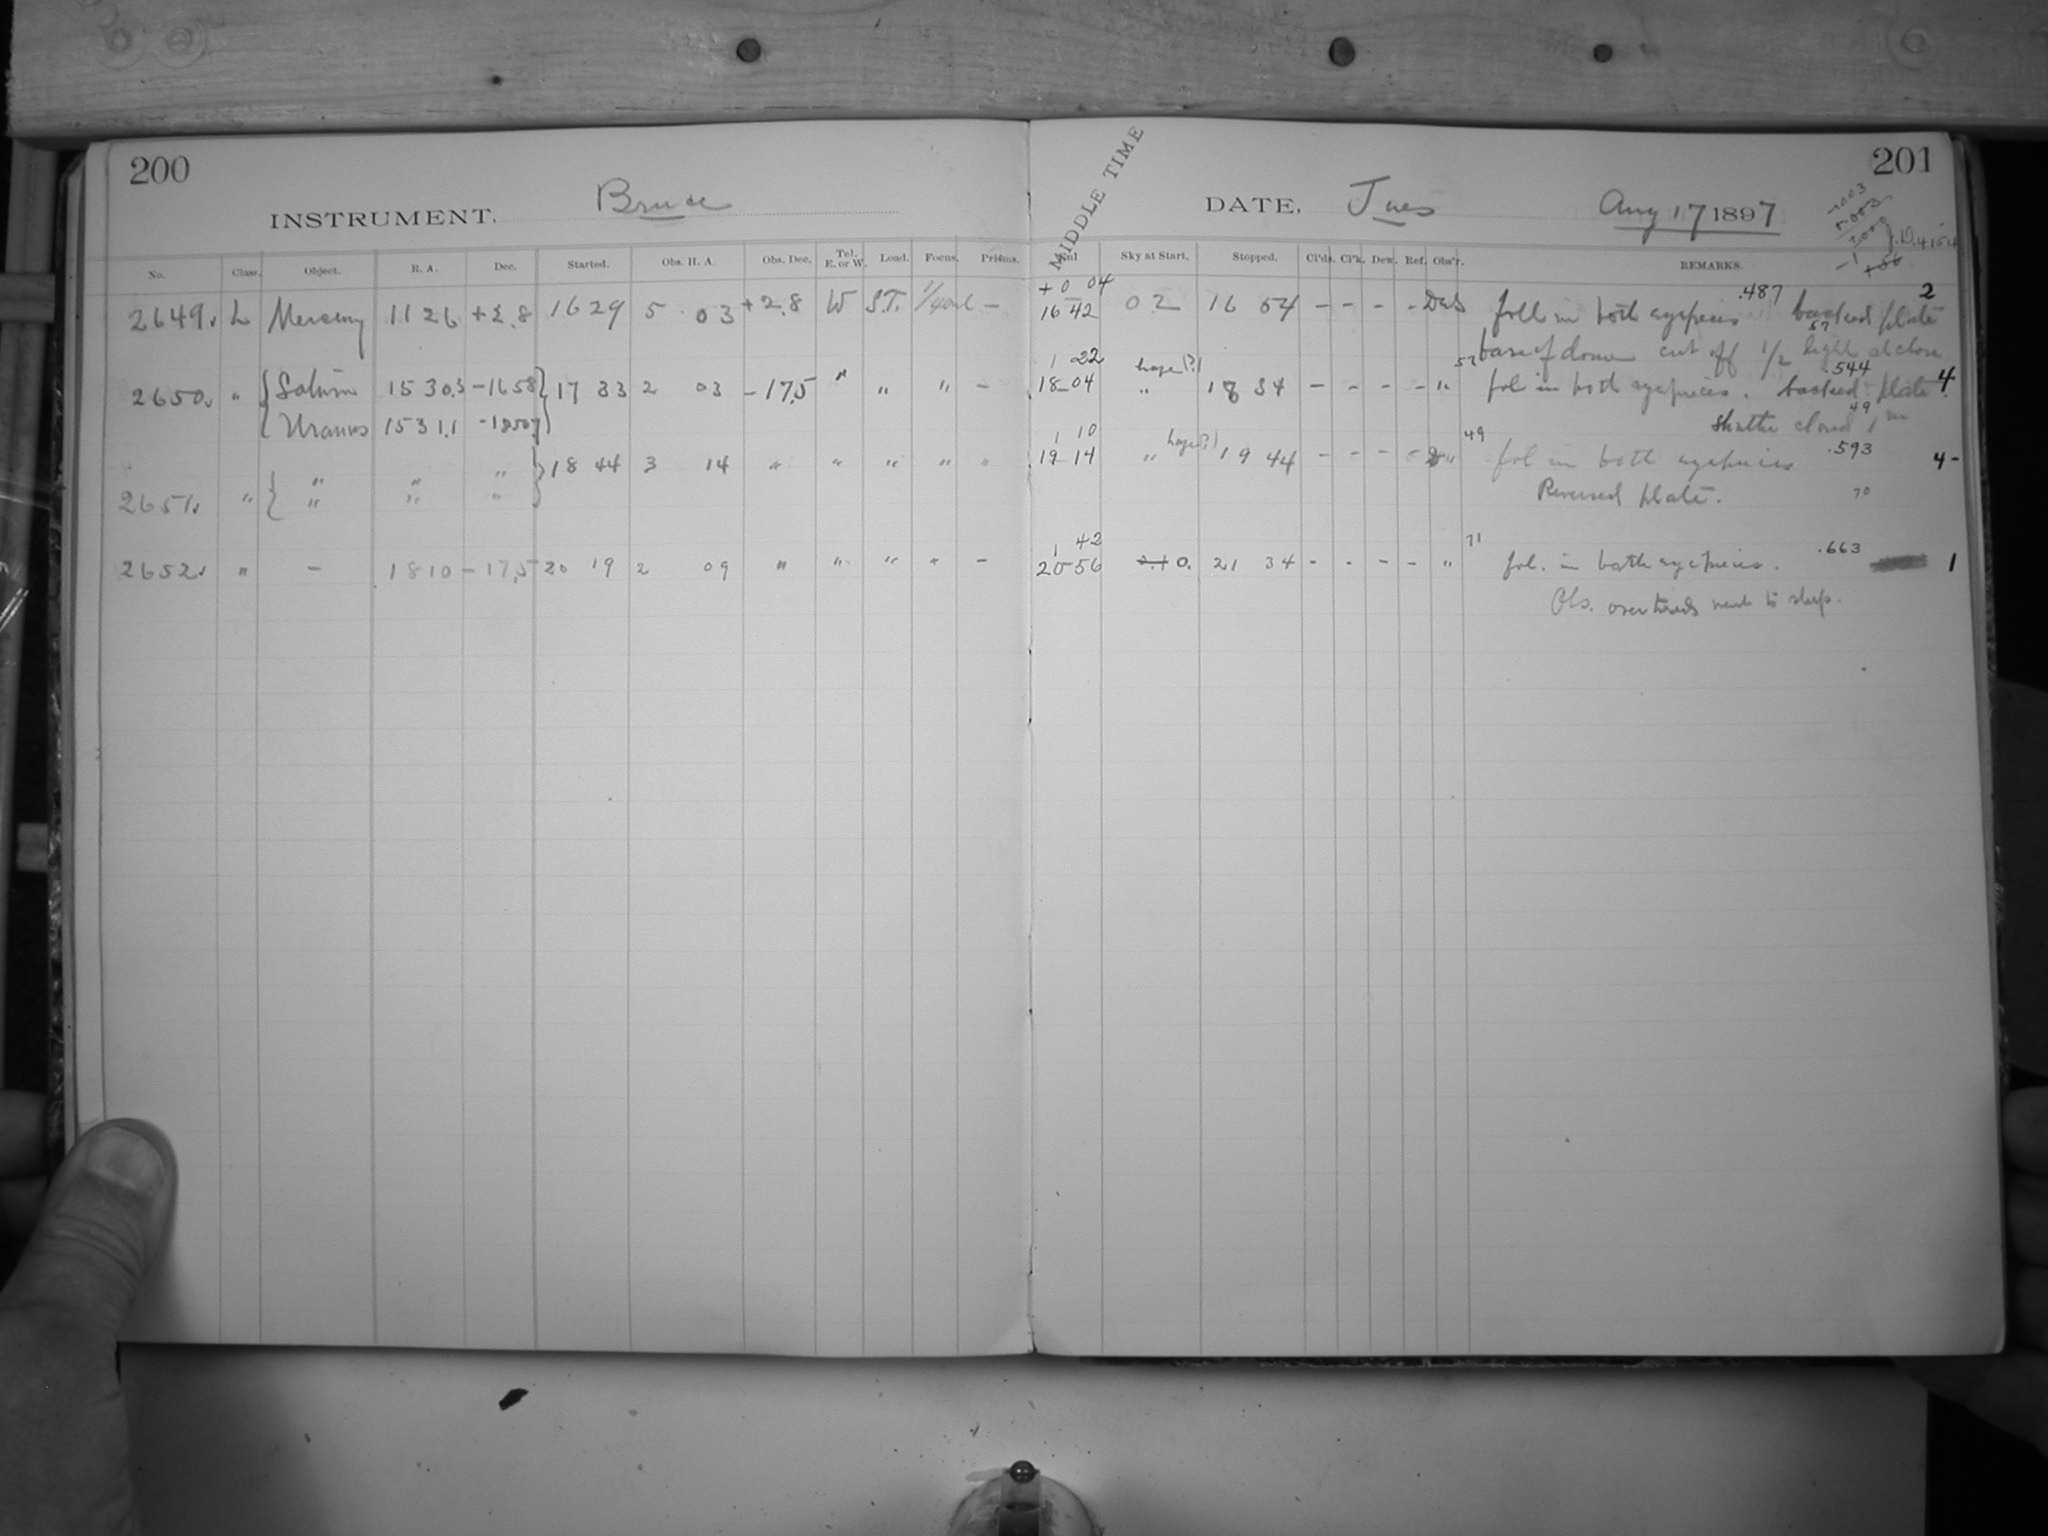 200
INSTRUMENT. Bruce
No. Class. Object. R. A. Dec. Started. Obs. H. A. Obs. Dec. Tel. E. or W. Load. Focus. Prisms.
2649. L Mercury 11 26 + 2.8 16 29 5 03 + 2.8 W S.T. —
2650. " { Saturn 15 30.3 - 16 58 } 17 33 2 03 - 17.5 " " " —
Uranus 15 31.1 - 18 50.7
" " " 18 44 3 14 " " " " "
2651. " { " " "
2652. " — 18 10 - 17.5 20 19 2 09 " " " " —
MIDDLE TIME
201
DATE, Tues Aug 17 1897
Sky at Start. Stopped. Cl'ds. Cl'k. Dew. Ref. Obs'r. REMARKS.
+ 0 04
16 42 0 2 16 54 — — — - foll in both eyepieces .487 backed plate 2
57
base of dome cut off 1/2 light at close
1 22 haze (?)
18 04 " 18 34 — - - - " 57 fol in both eyepieces. backed plate .544 4
Shutter closed 1m 49
1 10 haze (?)
19 14 " 19 44 - - - " 49 fol in both eyepieces .593 4 -
Reversed plate. 70
1 42
20 56 0. 21 34 - - - - " 71 fol. in both eyepieces. .663 1
Obs. over tired & went to sleep.